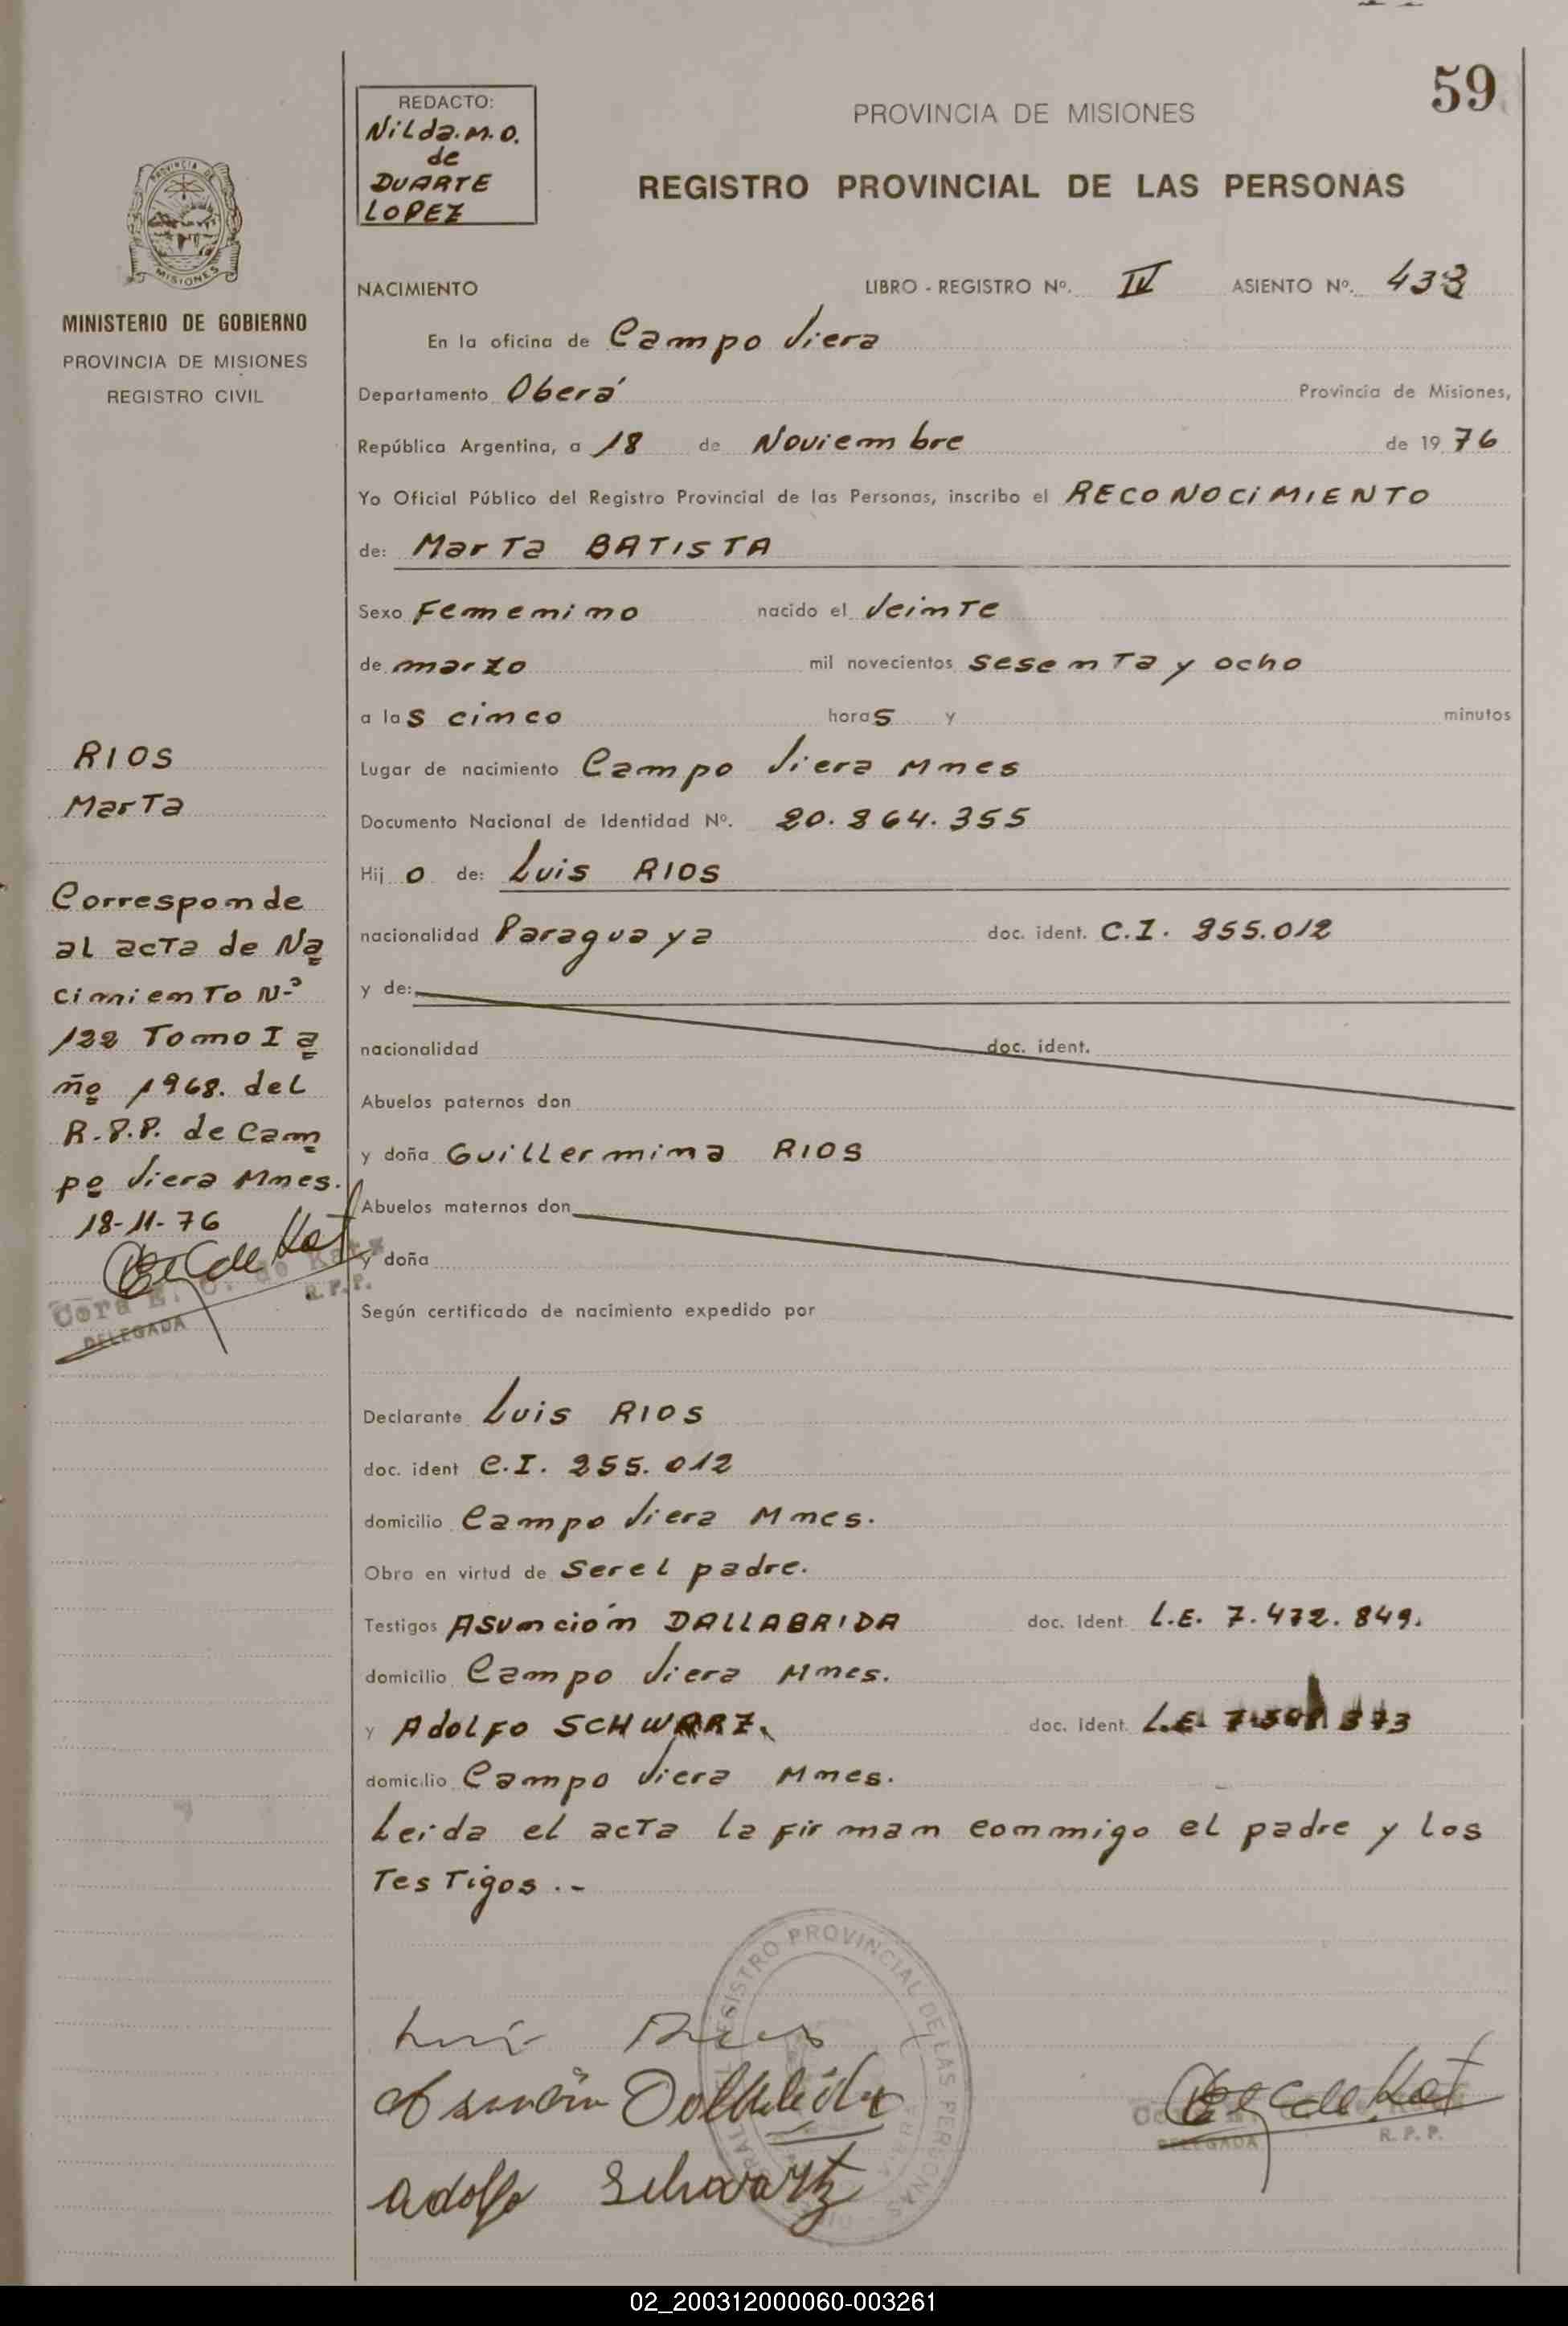 59
REDACTO:
Nilda.M.O.
de
DUARTE
LOPEZ
PROVINCIA DE MISIONES
REGISTRO PROVINCIAL DE LAS PERSONAS
MISIONES
MINISTERIO DE GOBIERNO
PROVINCIA DE MISIONES
REGISTRO CIVIL
NACIMIENTO LIBRO - REGISTRO Nº. IV ASIENTO Nº. 433
En la oficina de Campo Viera
Departamento Oberá Provincia de Misiones,
República Argentina, a 18 de Noviembre de 1976
Yo Oficial Público del Registro Provincial de las Personas, inscribo el RECONOCIMIENTO
de: Marta BATISTA
Sexo Femenino nacido el Veinte
de marzo mil novecientos sesenta y ocho
a las cinco horas y minutos
Lugar de nacimiento Campo Viera Mnes
Documento Nacional de Identidad Nº. 20.264.355
Hijo de: Luis RIOS
nacionalidad Paraguaya doc. ident. C.I. 255.012
y de:
nacionalidad doc. ident.
Abuelos paternos don
y doña Guillermina RIOS
Abuelos maternos don
y doña
Según certificado de nacimiento expedido por
Declarante Luis RIOS
doc. ident C.I. 255.012
domicilio Campo Viera Mnes.
Obra en virtud de Ser el padre.
Testigos Asunción DALLABRIDA doc. ident. L.E. 7.472.849.
domicilio Campo Viera Mnes.
y Adolfo SCHWARZ. doc. ident. L.E.
domicilio Campo Viera Mnes.
Leida el acta la firman conmigo el padre y los
Testigos.-
RIOS
Marta
Corresponde
al acta de Na
cimiento N-º
122 Tomo I a
ño 1968. del
R.P.P. de Cam
po Viera Mnes.
18-11-76
Cora E. C. de Katz
R.P.P.
DELEGADA
REGISTRO PROVINCIAL DE LAS PERSONAS
Luis Rios
Asunción Dallabrida
Adolfo Schwartz
DELEGADA R.P.P.
02_200312000060-003261